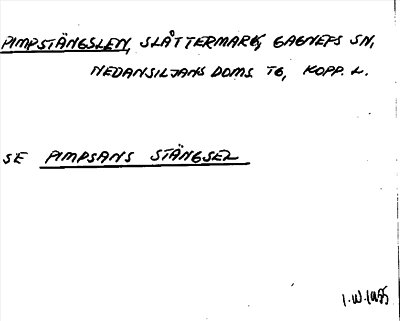 PIMPSTÄNGSLEN, SLÅTTERMARK, GAGNEFS SN,
NEDANSILJANS DOMS TG, KOPP. L.
SE PIMPSANS STÄNGSEL